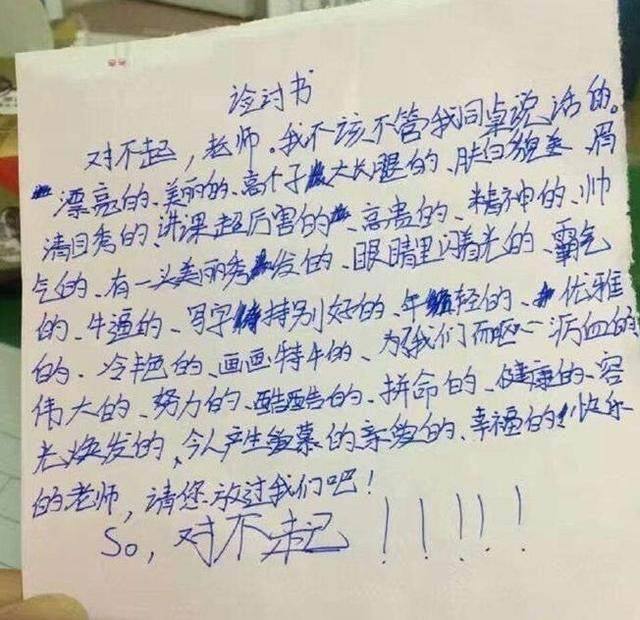 检讨书
对不起，老师。我不该不管我同桌说话的。
漂亮的、美丽的、高个子大长腿的、肤白貌美、眉
清目秀的、讲课超厉害的、高贵的、精神的、帅
气的、有一头美丽秀发的、眼睛里闪着光的、霸气
的、牛逼的、写字特别好的、年轻的、优雅
的、冷艳的、画画特牛的、为了我们而呕心沥血的
伟大的、努力的、酷酷的、拼命的、健康的、容
光焕发的、令人产生羡慕的亲爱的、幸福的、快乐
的老师，请您放过我们吧！
So，对不起！！！！！